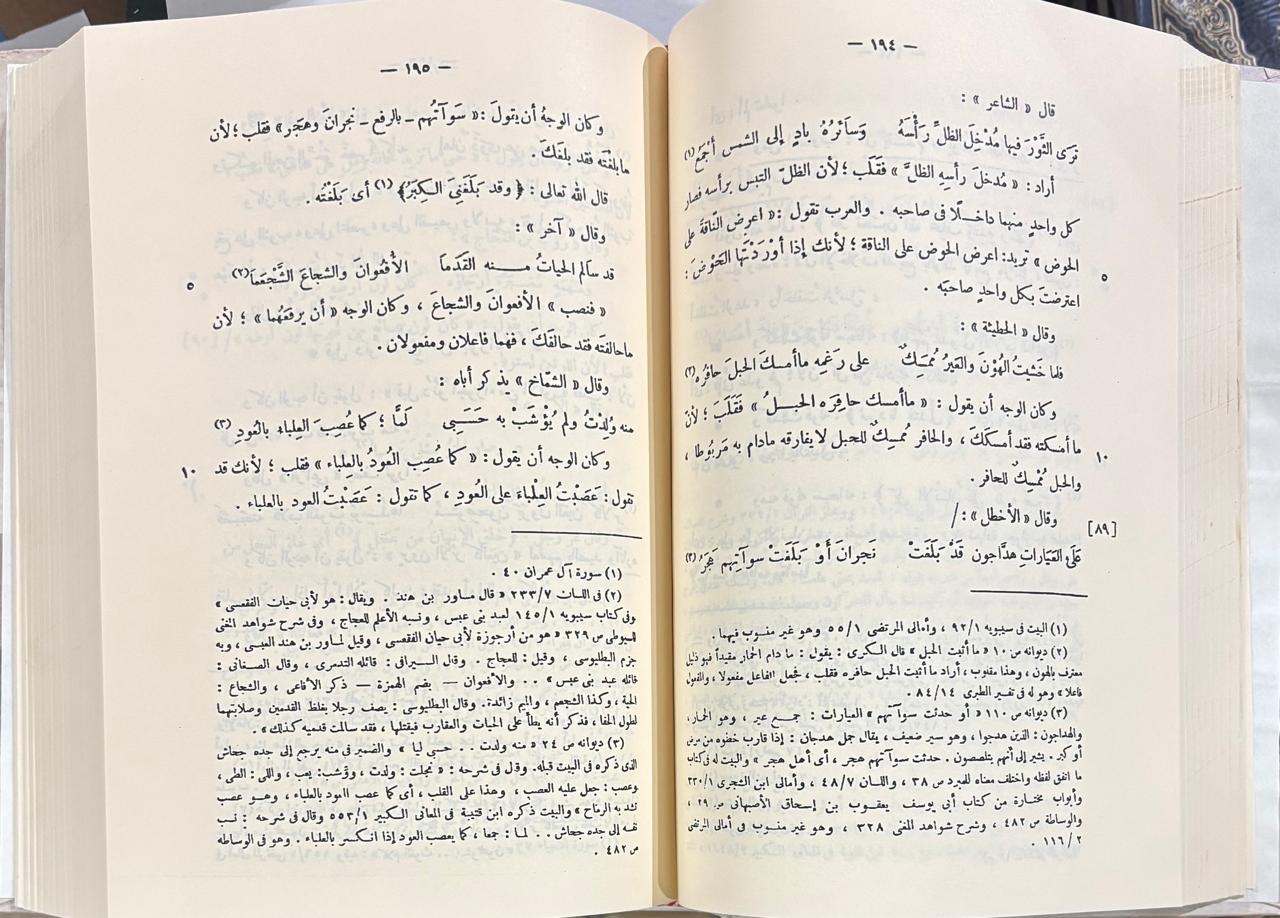 — ١٩٤ —
قال « الشاعر » :
تَرَى الثَّوْرَ فيها مُدْخِلَ الظلِّ رَأْسَهُ وَسَائرُهُ بادٍ إلى الشمس أَجْمَعُ (١)
أراد : « مُدخلَ رأسِه الظلَّ » فقَلَب ؛ لأن الظلّ التبس برأسه فصار
كل واحدٍ منهما داخلًا فى صاحبه . والعرب تقول : « اعرِض النّاقةَ على
الحوض » تريد : اعرض الحوض على الناقة ؛ لأنك إذا أوْرَدْتَها الحَوْضَ :
٥
اعترضتَ بكل واحدٍ صاحبَه .
وقال « الحطيئة » :
فلما خشيتُ الهُوْنَ والعَيْرُ مُمسِكٌ على رَغمِه ماأمسكَ الحبلَ حافرُه (٢)
وكان الوجه أن يقول : « ماأمسك حافرَه الحبلُ » فقَلَبَ ؛ لأن
ما أمسكته فقد أمسَكَكَ ، والحافر مُمسِكٌ للحبل لايفارقه مادام به مَربُوطا ،
١٠
والحبل مُمْسِكٌ للحافر .
وقال « الأخطل » : /
[٨٩]
عَلَى العَيَاراتِ هدَّاجون قَدْ بَلَغَتْ نَجرانَ أَوْ بَلَغَتْ سوآتِهم هَجَرُ (٣)
(١) البيت فى سيبويه ٩٢/١ ، وأمالى المرتضى ٥٥/١ وهو غير منسوب فيهما .
(٢) ديوانه ص ١٠ « ما أثبت الحبل » قال السكرى : يقول : ما دام الحمار مقيداً فهو ذليل
معترف بالهون ، وهذا مقلوب ، أراد ما أثبت الحبل حافره فقلب ، فجعل الفاعل مفعولا ، والمفعول
فاعلا » وهو له فى تفسير الطبرى ٨٤/١٤ .
(٣) ديوانه ص ١١٠ « أو حدثت سوآتهم » العيارات : جمع عير ، وهو الحمار ،
والهداجون : الذين هدجوا ، وهو سير ضعيف ، يقال جمل هدجان : إذا قارب خطوه من مرض
أو كبر . يشير إلى أنهم يتلصصون . حدثت سوآتهم هجر ، أى أهل هجر » والبيت له فى كتاب
ما اتفق لفظه واختلف معناه للمبرد ص ٣٨ ، واللسان ٤٨/٧ ، وأمالى ابن الشجرى ٣٣٠/١
وأبواب مختارة من كتاب أبى يوسف يعقوب بن إسحاق الأصبهانى ص ٢٩ ،
والوساطة ص ٤٨٢ ، وشرح شواهد المغنى ٣٢٨ ، وهو غير منسوب فى أمالى المرتضى
١١٦/٢ .
— ١٩٥ —
وكان الوجهُ أن يقولَ : « سَوآتُهم ـ بالرفع ـ نجرانَ وهَجَر » فقلب ؛ لأن
مابلغْتَه فقد بلغَكَ .
قال الله تعالى : ﴿ وقد بَلَغَنِىَ الكِبَرُ ﴾ (١) أى بَلَغْتُه .
وقال « آخر » :
قد سالم الحياتُ منه القَدَمَا الأُفْعوانَ والشجاعَ الشَّجْعَمَا (٢)
٥
« فنصب » الأفعوانَ والشجاعَ ، وكان الوجه « أن يرفعَهُما » ؛ لأن
ماحالفتَه فقد حالفَكَ ، فهما فاعلان ومفعولان .
وقال « الشمّاخ » يذكر أباه :
منه وُلِدْتُ ولم يُؤْشَبْ به حَسَبِى لَمًّا ؛ كما عُصِبَ العِلباءُ بالعُودِ (٣)
وكان الوجه أن يقول : « كما عُصِب العُودُ بالعِلباء » فقلب ؛ لأنك قد
١٠
تقول : عَصَبْتُ العِلْباءَ على العُودِ ، كما تقول : عَصَبْتُ العود بالعلباء .
(١) سورة آل عمران ٤٠ .
(٢) فى اللسان ٢٣٣/٧ « قال مساور بن هند . ويقال : هو لأبى حيات الفقعسى »
وفى كتاب سيبويه ١٤٥/١ لعبد بنى عبس ، ونسبه الأعلم للعجاج ، وفى شرح شواهد المغنى
للسيوطى ص ٣٢٩ « هو من أرجوزة لأبى حيان الفقعسى ، وقيل لمساور بن هند العبسى ، وبه
جزم البطليوسى ، وقيل : للعجاج . وقال السيرافى : قائله التدمرى ، وقال الصغانى :
قائله عبد بنى عبس » . . والأفعوان — بضم الهمزة — ذكر الأفاعى ، والشجاع :
الحية ، وكذا الشجعم ، والميم زائدة. وقال البطليوسى : يصف رجلا بغلظ القدمين وصلابتهما
لطول الحفا ، فذكر أنه يطأ على الحيات والعقارب فيقتلها ، فقد سالمت قدميه كذلك » .
(٣) ديوانه ص ٢٤ « منه ولدت . . حسبى ليا » والضمير فى منه يرجع إلى جده جحاش
الذى ذكره فى البيت قبله. وقال فى شرحه : « نجلت : ولدت ، ويؤشب: يعب ، واللى : الطى ،
وعصب : جعل عليه العصب ، وهذا على القلب ، أى كما عصب العود بالعلباء ، وهو عصب
تشد به الرماح » والبيت ذكره ابن قتيبة فى المعانى الكبير ٥٥٣/١ وقال فى شرحه : نسب
نفسه إلى جده جحاش . . لما : جمعا ، كما يعصب العود إذا انكسر بالعلباء . وهو فى الوساطة
ص ٤٨٢ .